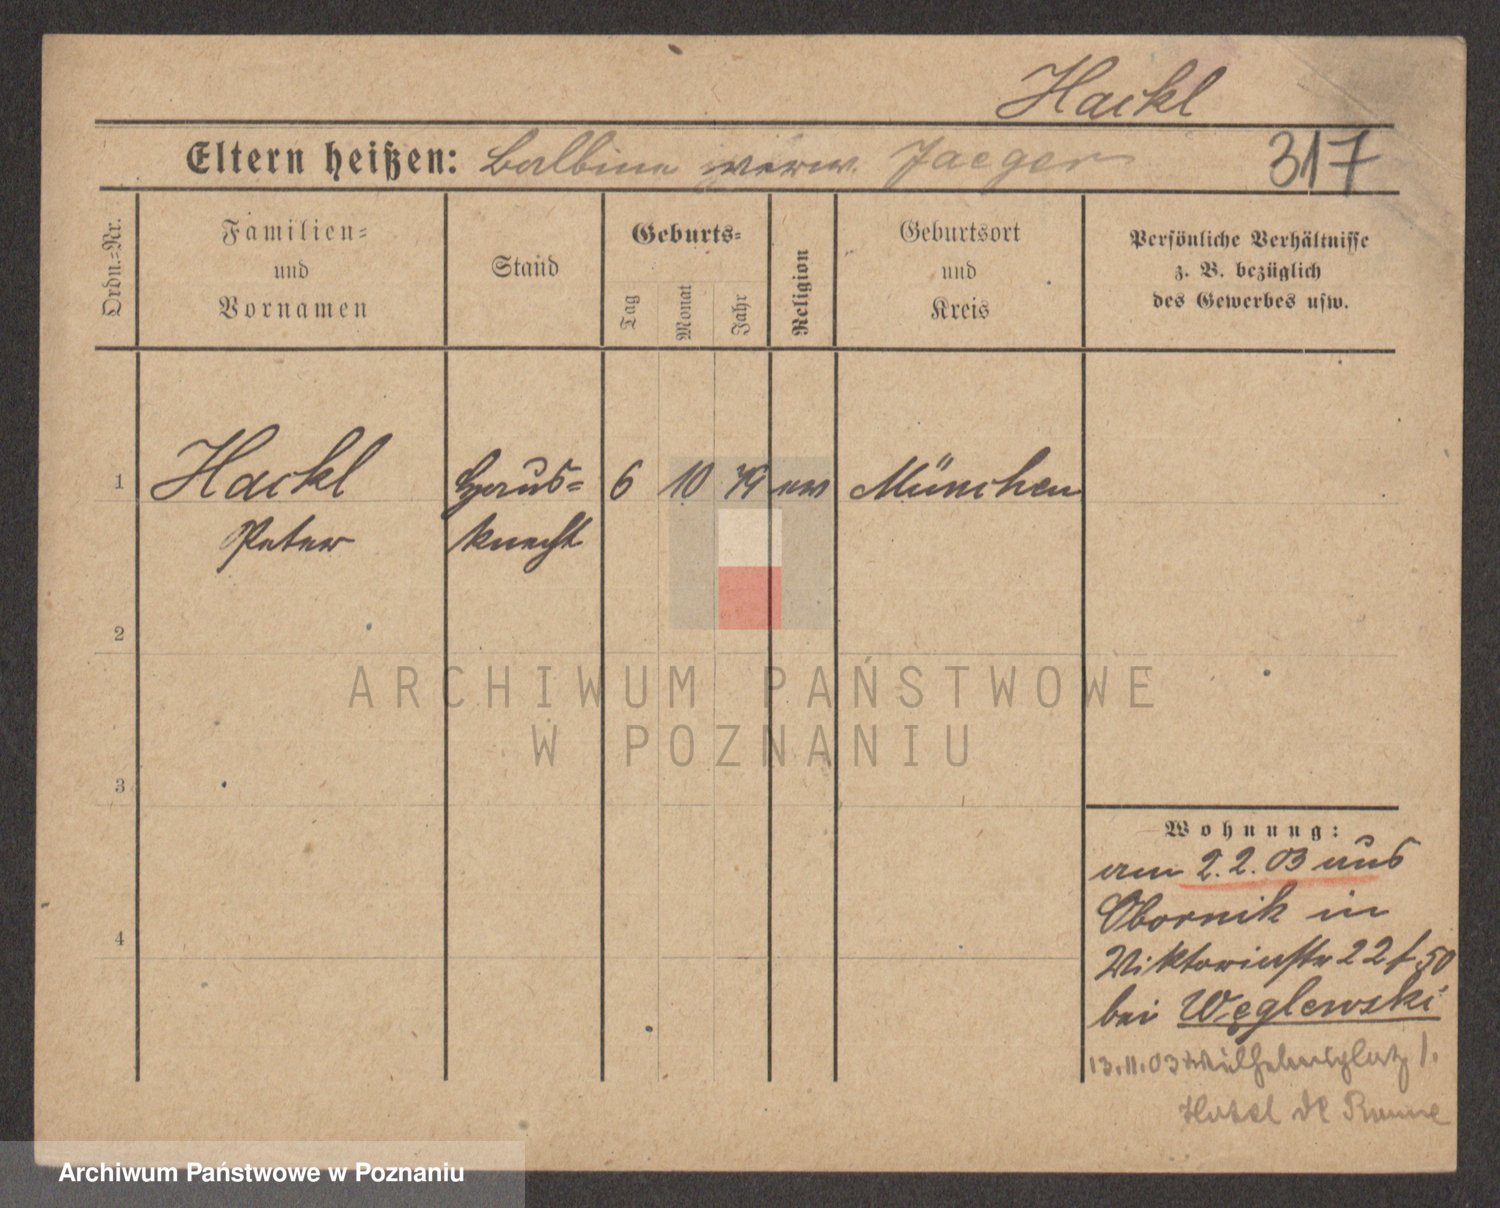 Hackl
Eltern heißen: Balbine verw. Jaeger
317
Ordn.-Nr.
Familien-
und
Vornamen
Stand
Geburts-
Tag
Monat
Jahr
Religion
Geburtsort
und
Kreis
Persönliche Verhältnisse
z. B. bezüglich
des Gewerbes usw.
1 Hackl Haus- 6 10 79 München
Peter knecht
2
ARCHIWUM PAŃSTWOWE
W POZNANIU
3
Wohnung:
am 2.2.03 aus
4 Obornik in
Viktoriastr 22 f. 50
bei Węglewski
13.11.03 Wilhelmsplatz 1.
Hotel de Rome
Archiwum Państwowe w Poznaniu